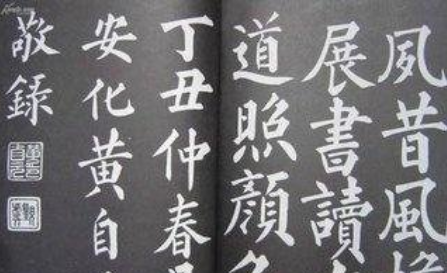 夙昔風
展書讀
道照顏
丁丑仲春
安化黃自
敬錄